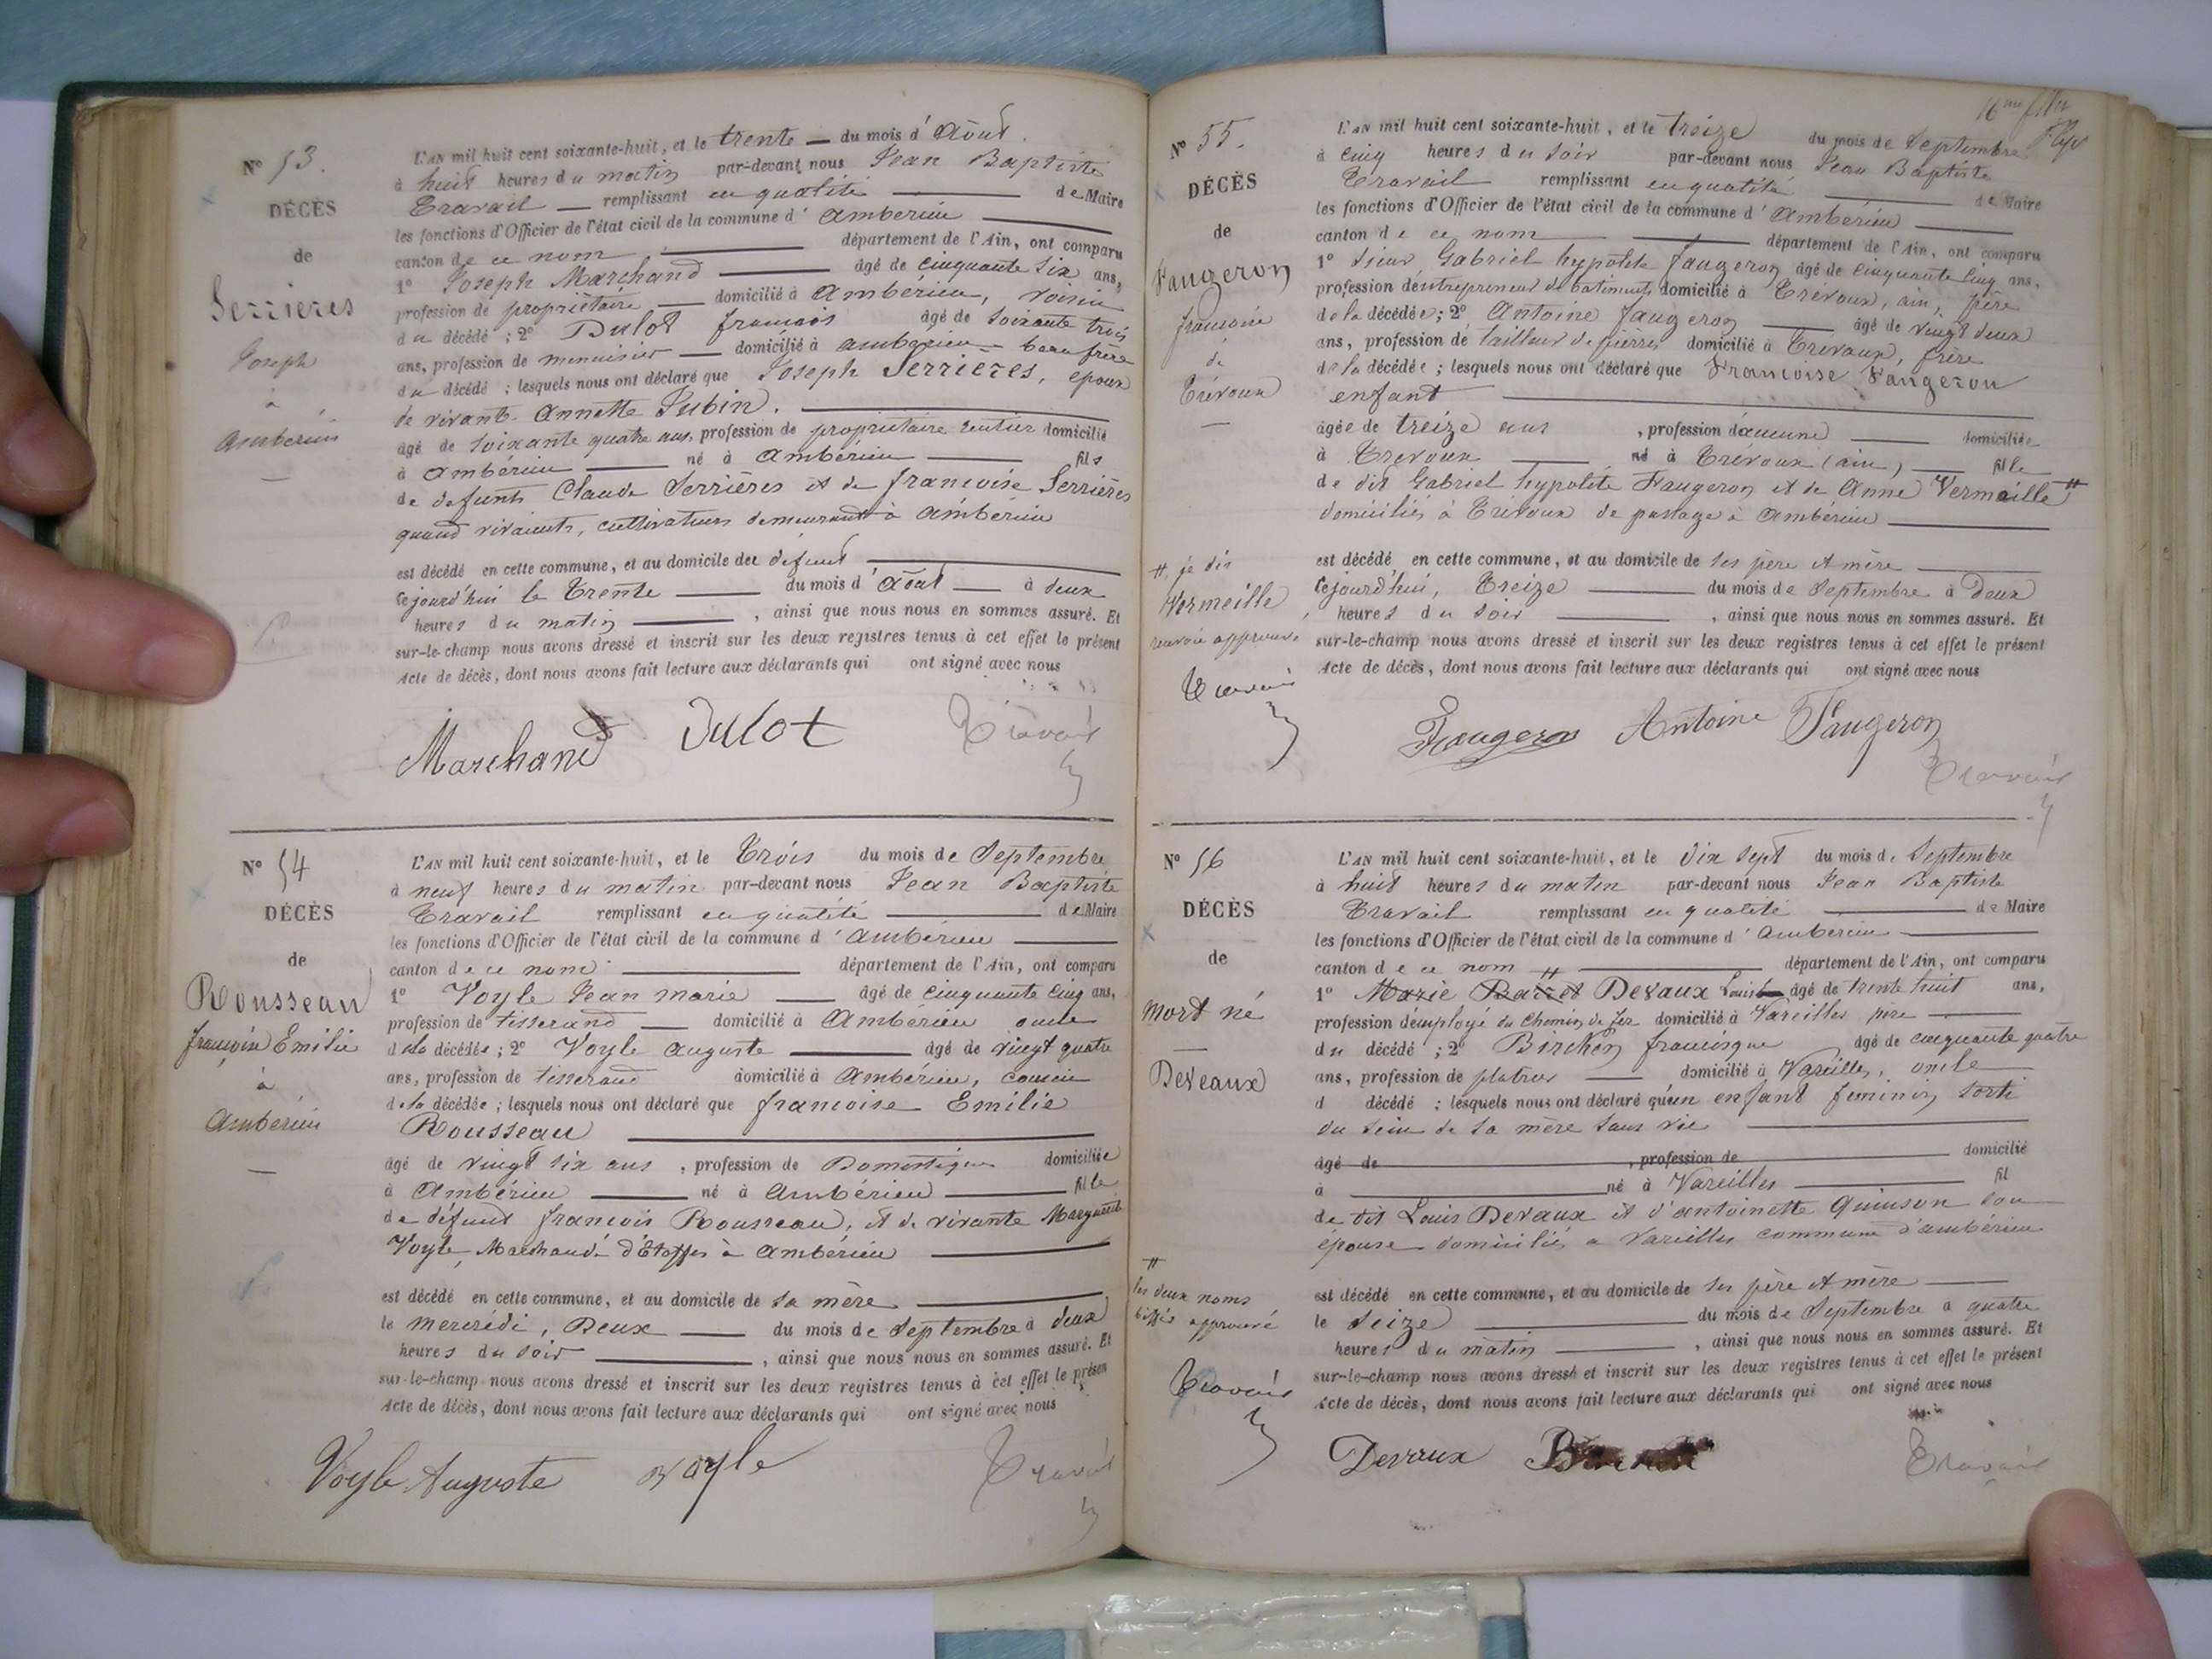 N° 53.
DÉCÈS
de
Serrieres
Joseph
à
Ambérieu
L'AN mil huit cent soixante-huit, et le trente — du mois d'Août.
à huit heures du matin par-devant nous Jean Baptiste
Travail — remplissant en qualité — de Maire
les fonctions d'Officier de l'état civil de la commune d'Ambérieu —
canton de ce nom — département de l'Ain, ont comparu
1° Joseph Marchand — âgé de cinquante six ans,
profession de propriétaire — domicilié à Ambérieu, voisin
du décédé ; 2° Dulot françois âgé de soixante trois
ans, profession de menuisier — domicilié à ambérieu — beau frère
du décédé ; lesquels nous ont déclaré que Joseph Serrieres, epoux
de vivante Annette Subin. —
âgé de soixante quatre ans, profession de propriétaire rentier domicilié
à Ambérieu — né à Ambérieu — fils
de defunts Claude Serrières et de françoise Serrières
quand vivaients, cultivateurs demeurant à Ambérieu
est décédé en cette commune, et au domicile du défunt —
cejourd'hui le Trente — du mois d'Août — à deux
heures du matin —, ainsi que nous nous en sommes assuré. Et
sur-le-champ nous avons dressé et inscrit sur les deux registres tenus à cet effet le présent
Acte de décès, dont nous avons fait lecture aux déclarants qui ont signé avec nous
Marchand Dulot Travail
N° 54
DÉCÈS
de
Rousseau
françoise Emilie
à
Ambérieu
L'AN mil huit cent soixante-huit, et le Trois du mois de Septembre
à neuf heures du matin par-devant nous Jean Baptiste
Travail remplissant en qualité — de Maire
les fonctions d'Officier de l'état civil de la commune d'Ambérieu —
canton de ce nom — département de l'Ain, ont comparu
1° Voyle Jean marie — âgé de cinquante cinq ans,
profession de tisserand — domicilié à Ambérieu oncle
de la décédée ; 2° Voyle auguste — âgé de vingt quatre
ans, profession de tisserand domicilié à Ambérieu, cousin
de la décédée ; lesquels nous ont déclaré que françoise Emilie
Rousseau —
âgé de vingt six ans, profession de Domestique domiciliée
à Ambérieu — né à Ambérieu — fille
de défunt françois Rousseau, et de vivante Marguerite
Voyle, Marchande d'Etoffes à Ambérieu —
est décédé en cette commune, et au domicile de sa mère —
le mercredi, Deux — du mois de Septembre à deux
heures du soir —, ainsi que nous nous en sommes assuré. Et
sur-le-champ nous avons dressé et inscrit sur les deux registres tenus à cet effet le présen
Acte de décès, dont nous avons fait lecture aux déclarants qui ont signé avec nous
Voyle Auguste Voyle Travail
16me
N° 55.
DÉCÈS
de
Faugeron
françoise
de
Trévoux
L'AN mil huit cent soixante-huit, et le treize du mois de Septembre
à cinq heures du soir par-devant nous Jean Baptiste
Travail remplissant en qualité — de Maire
les fonctions d'Officier de l'état civil de la commune d'Ambérieu —
canton de ce nom — département de l'Ain, ont comparu
1° Sieur Gabriel hypolite faugeron âgé de cinquante cinq ans,
profession d'entrepreneur de batiments domicilié à Trévoux, ain, père
de la décédée ; 2° Antoine faugeron — âgé de vingt deux
ans, profession de tailleur de pierres domicilié à Trévoux, frère
de la décédée ; lesquels nous ont déclaré que Francoise Faugeron
enfant —
âgée de treize ans, profession d'aucune — domiciliée
à Trevoux — né à Trévoux (ain) — fille
de dit Gabriel hypolite Faugeron et de Anne Vermaille #
domiciliés à Trévoux de passage à Ambérieu —
est décédé en cette commune, et au domicile de ses père et mère —
Cejourd'hui, Treize — du mois de Septembre à Deux
heures du soir —, ainsi que nous nous en sommes assuré. Et
sur-le-champ nous avons dressé et inscrit sur les deux registres tenus à cet effet le présent
Acte de décès, dont nous avons fait lecture aux déclarants qui ont signé avec nous
# je dis
Vermeille,
renvoi approuvé
Travail
Faugeron Antoine Faugeron
Travail
N° 56
DÉCÈS
de
Mort né
—
Deveaux
L'AN mil huit cent soixante-huit, et le dix sept du mois de Septembre
à huit heures du matin par-devant nous Jean Baptiste
Travail remplissant en qualité — de Maire
les fonctions d'Officier de l'état civil de la commune d'Ambérieu —
canton de ce nom # — département de l'Ain, ont comparu
1° Marie Barret Devaux Louis âgé de trente huit ans,
profession d'employé du Chemin de fer domicilié à Vareilles père —
du décédé ; 2° Birchon francisque âgé de cinquante quatre
ans, profession de platrier — domicilié à Vareilles, oncle
d décédé ; lesquels nous ont déclaré qu'un enfant feminin sorti
du sein de sa mère sans vie —
âgé de —, profession de — domicilié
à — né à Vareilles — fil
de dit Louis Devaux et d'antoinette Quinson son
épouse domiciliés a Vareilles commune d'ambérieu
est décédé en cette commune, et au domicile de ses père et mère —
le seize — du mois de Septembre a quatre
heures du matin —, ainsi que nous nous en sommes assuré. Et
sur-le-champ nous avons dressé et inscrit sur les deux registres tenus à cet effet le présent
Acte de décès, dont nous avons fait lecture aux déclarants qui ont signé avec nous
#
les deux noms
biffés approuvé
Travail
Devaux
Travail